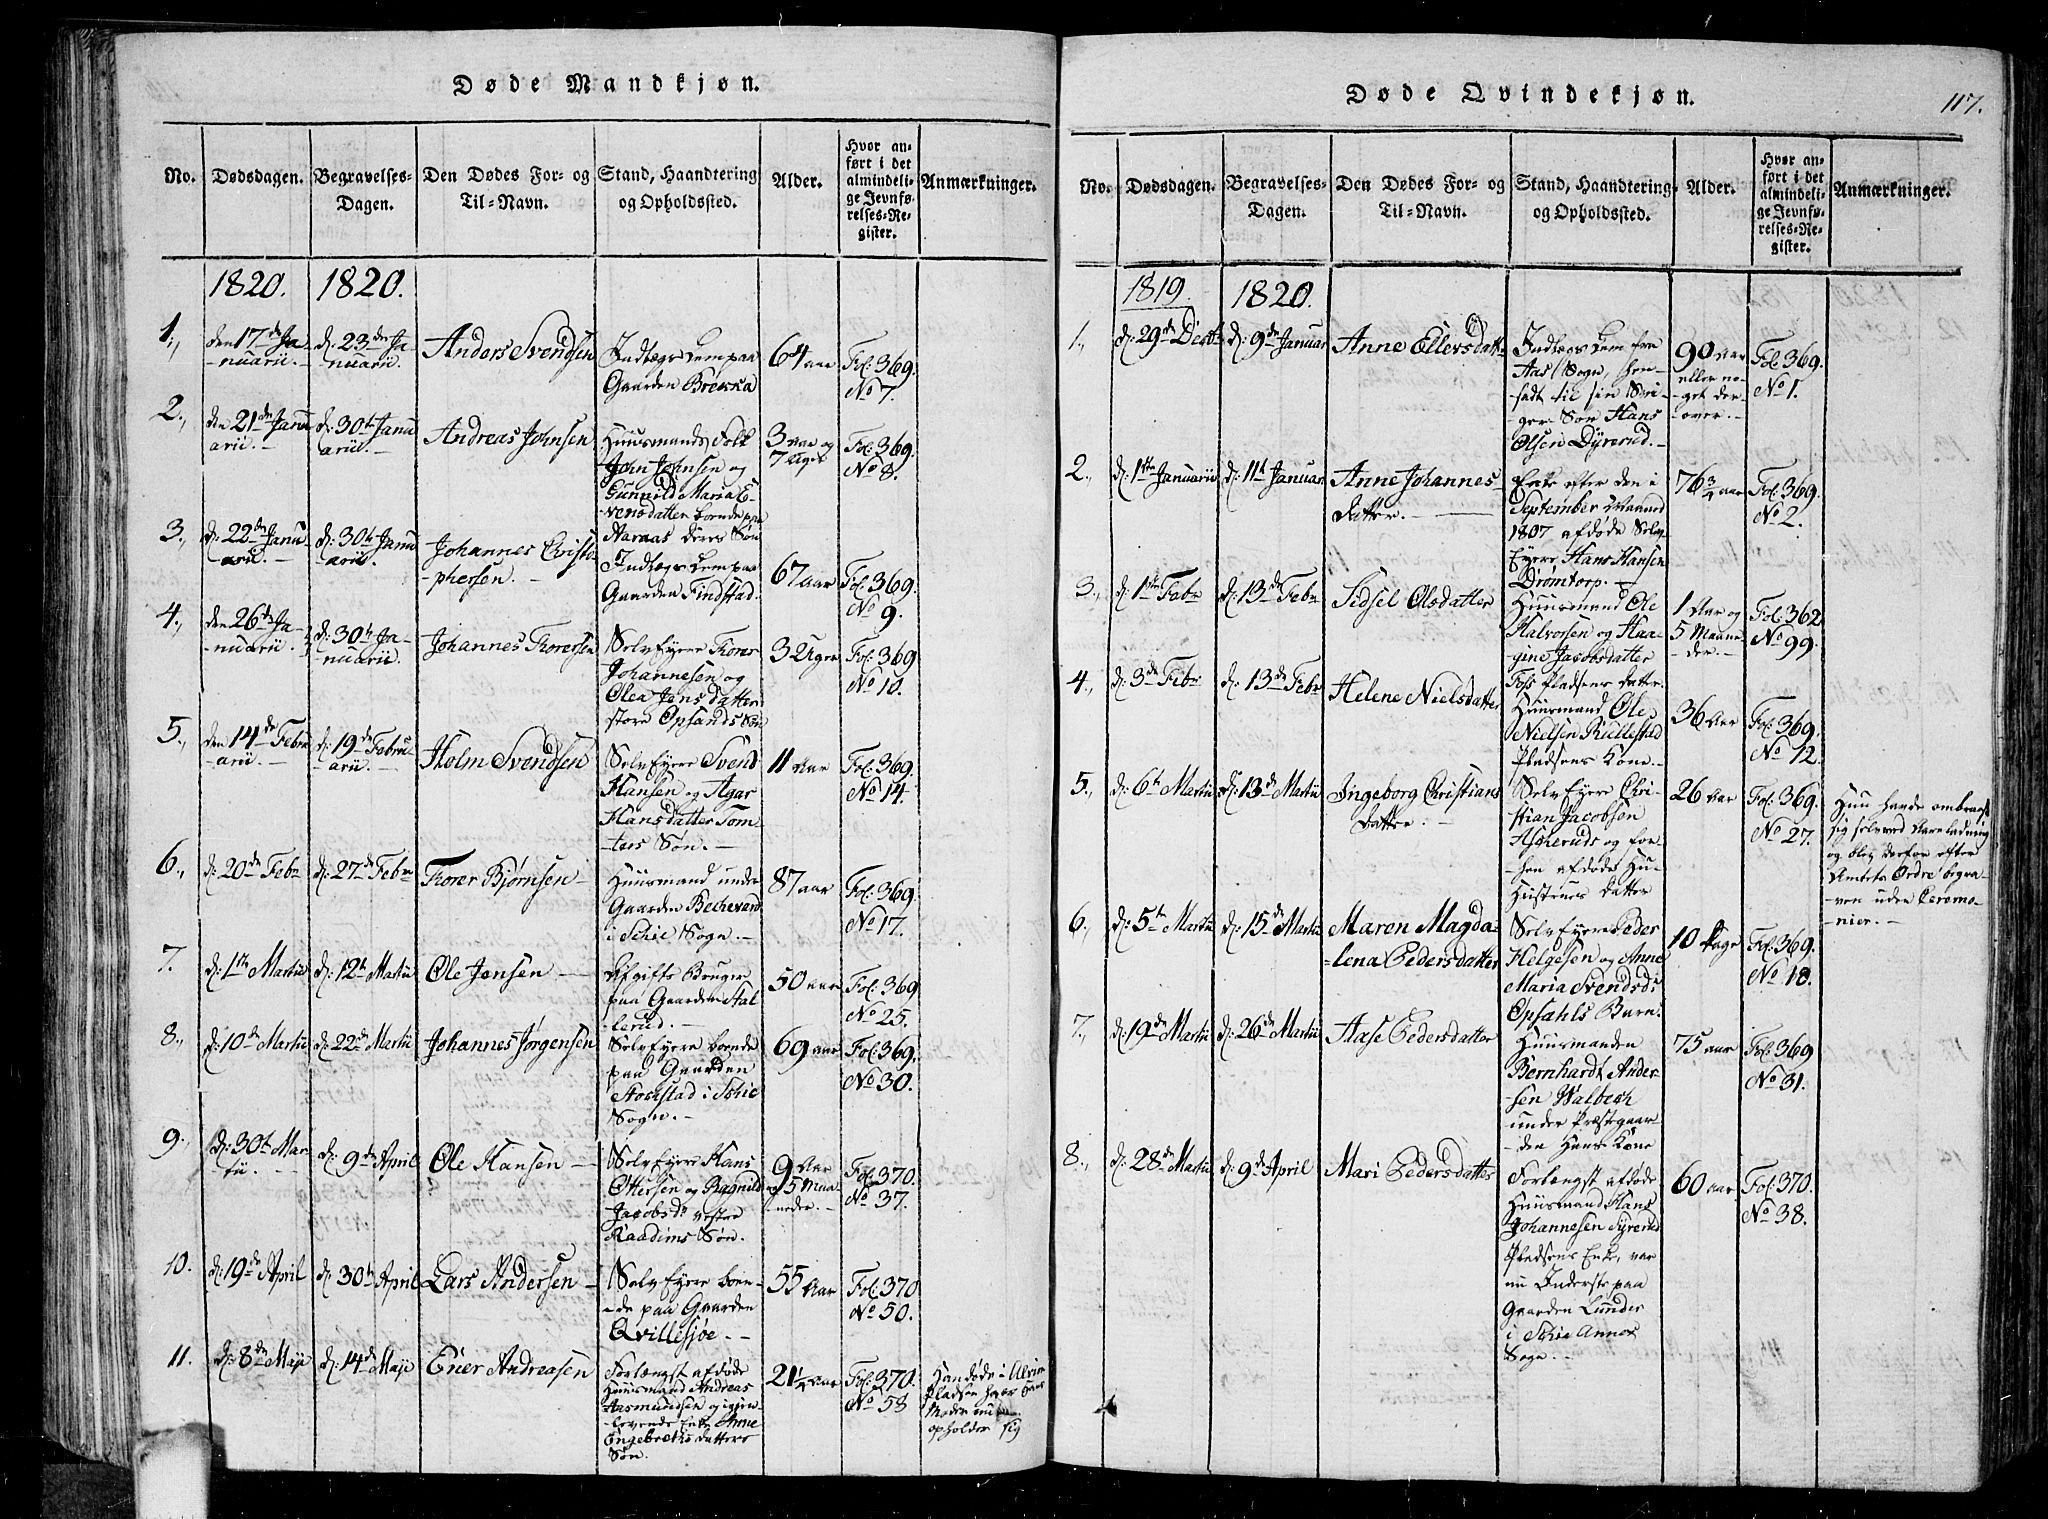 Døde Mandkjøn.
No.
Dødsdagen.
Begravelses-
Dagen.
Den Dødes For- og
Til-Navn.
Stand, Haandtering
og Opholdssted.
Alder.
Hvor an-
ført i det
almindeli-
ge Jevnfø-
relses-Re-
gister.
Anmærkninger.
1820.
1820.
1.,
den 17de Ja-
nuarii.
d: 23de Ja-
nuarii.
Anders Svendsen
Indlægs Lem paa
Gaarden Brekka
64 aar
Fol: 369.
No 7.
2.,
den 21de Janu
arii.
d: 30te Janu
arii.
Andreas Johnsen
Huusmands Folk
John Johnsen og
Gunnild Maria E-
vensdatter boende paa
Aaraas deres Søn
3 aar og
7 Uger
Fol: 369.
No 8.
3.,
d: 22de Janu
arii.
d: 30te Janu
arii.
Johannes Christo-
phersen.
Indlægs Lem paa
Gaarden Findstad.
67 aar
Fol: 369.
No 9.
4.,
den 26te Ja-
nuarii.
d: 30te Ja-
nuarii.
Johannes Torersen
Selv Eyere Torer
Johannesen og
Olea Jensdatter
store Opsands Søn
3 Uger
Fol: 369
No 10.
5.,
den 14de Febru
arii.
d: 19de Febru-
arii.
Holm Svendsen
Selv Eyere Svend
Hansen og Agar
Hansdatter Tom-
ters Søn.
11 Aar
Fol: 369.
No 14.
6.,
d: 20de Febr
d: 27de Febr
Torer Bjørnsen
Huusmand under
Gaarden Bechevard
i Schie Sogn.
87 aar
Fol: 369.
No 17.
7.
d: 1te Martii
d: 12te Martii
Ole Jensen
Afgifts Bruger
paa Gaarden Stal
lerud.
50 aar
Fol: 369
No 25.
8.,
d: 10de Martii
d: 22de Martii
Johannes Jørgensen
Selv Eyere boende
paa Gaarden
Stochstad i Schie
Sogn.
69 aar
Fol: 369.
No 30.
9.,
d: 30te Mar-
tii.
d: 9de April
Ole Hansen
Selv Eyere Hans
Ottersen og Ragnild
Jacobsdr vestre
Raadims Søn.
9 Aar
og 5 Maa
neder.
Fol: 370.
No 37.
10.
d: 19de April
d: 30te April
Lars Andersen
Selv Eyere boen-
de paa Gaarden
Qvillesjøe.
55 Aar
Fol: 370
No 50.
11.
d: 8de Maji
d: 14de Maji
Ener Andreasen
Forlængst afdøde
Huusmand Andreas
Aasmundsen og igien
levende Enke Anne
Engebrethsdatters
Søn.
21 1/4 Aar
Fol: 370.
No 58
Han døde i
Pladsen hvor hans
Moder nu
opholder sig
Døde Qvindekjøn.
117.
No.
Dødsdagen.
Begravelses-
Dagen.
Den Dødes For- og
Til-Navn.
Stand, Haandtering
og Opholdssted.
Alder.
Hvor an-
ført i det
almindeli-
ge Jevnfø-
relses-Re-
gister.
Anmærkninger.
1819.
1820.
1.,
d: 29de Decbr
d: 9de Januar
Anne Ellersdatt
Indlægs Lem fra
Aas Sogn, hen-
sadt til sin Svi-
ger Søn Hans
Olsen Dyrerud.
90 aar
eller no-
get der-
over.
Fol: 369.
No 1.
2.,
d: 1te Januarii
d: 11te Januar
Anne Johannes-
datter.
Enke efter den i
September Maaned
1807 afdøde Selv
Eyere, Hans Hansen
Drømtorp.
76 3/4 aar
Fol: 369.
No 2.
3.,
d: 1te Febr
d: 13de Febr
Sidsel Olsdatter
Huusmand Ole
Halvorsen og Haa-
gine Jacobsdatter
Foss Pladsens datter.
1 Aar og
5 Maane
der.
Fol: 362
No 99.
4.,
d: 3de Febr
d: 13de Febr
Helene Nielsdatter
Huusmand Ole
Nielsen Kullestad
Pladsens Kone.
36 Aar
Fol: 369.
No 12.
5.,
d: 6te Martii
d: 13de Martii
Ingeborg Christians
datter.
Selv Eyere Chri-
stian Jacobsen
Askeruds og for-
hen afdøde Hu-
Hustrues datter
26 Aar
Fol: 369.
No 27.
Hun havde ombragt
sig selv ved
og blev derfor efter
Amtets Ordre begra-
ven uden Ceremo-
nier.
6.,
d: 5te Martii
d: 15de Martii
Maren Magda-
lena Pedersdatter
Selv Eyere Peder
Helgesen og Anne
Maria Svendsdr
Opsahls Barn.
10 Dage
Fol: 369.
No 18.
7.,
d: 19de Martii
d: 26de Martii
Aase Pedersdatter
Huusmanden
Bernhardt Ander
sen Walbech
under Præstegaar-
den Hans Kone
75 aar
Fol: 369
No 31.
8.,
d: 28de Martii
d: 9de April
Mari Pedersdatter
Forlængst afdøde
Huusmand Hans
Johannesen Dyrerud
Pladsens Enke, var
nu Inderste paa
Gaarden Lunder
i Schie Annex
Sogn.
60 aar
Fol: 370.
No 38.